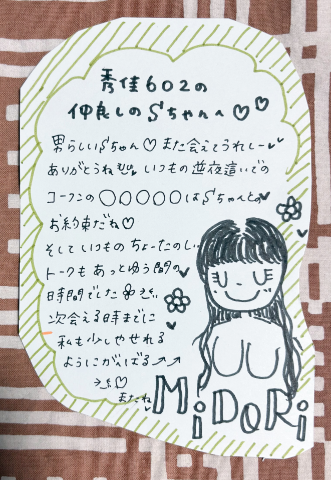 秀佳602の
仲良しのSちゃんへ♡♡
男らしいSちゃん♡また会えてうれしー♥
ありがとうね いつもの並夜這いでの
コーフンの○○○○○はSちゃんとの
お約束だね♡
そしていつものちょーたのしい
トークもあっとゆう間の
時間でした
次会える時までに
私も少しやせれる
ようにがんばる↗↗
♡
またね♥
MiDORi